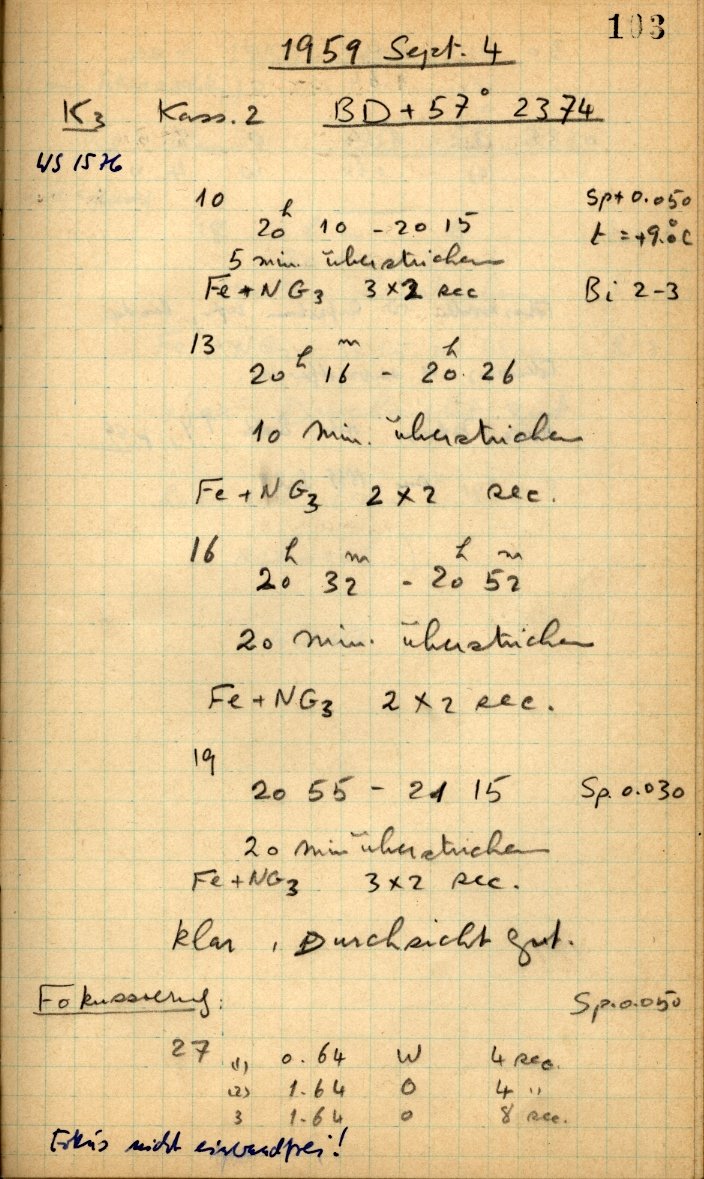 103
1959 Sept. 4
K3 Kass. 2 BD+57° 2374
WS 1576
10 Sp+0.050
20h 10 - 20 15 t = +9.0°C
5 min. überstrichen
Fe+NG3 3×2 sec Bi 2-3
13
20h 16m - 20h 26
10 Min. überstrichen
Fe+NG3 2×2 sec.
16
20h 32m - 20h 52m
20 min. überstrichen
Fe+NG3 2×2 sec.
19
20 55 - 21 15 Sp. 0.030
20 min überstrichen
Fe+NG3 3×2 sec.
klar, Durchsicht gut.
Fokussierung: Sp. 0.050
27 (1) 0.64 W 4 sec.
(2) 1.64 O 4 "
3 1.64 O 8 sec.
Fokus nicht einwandfrei!